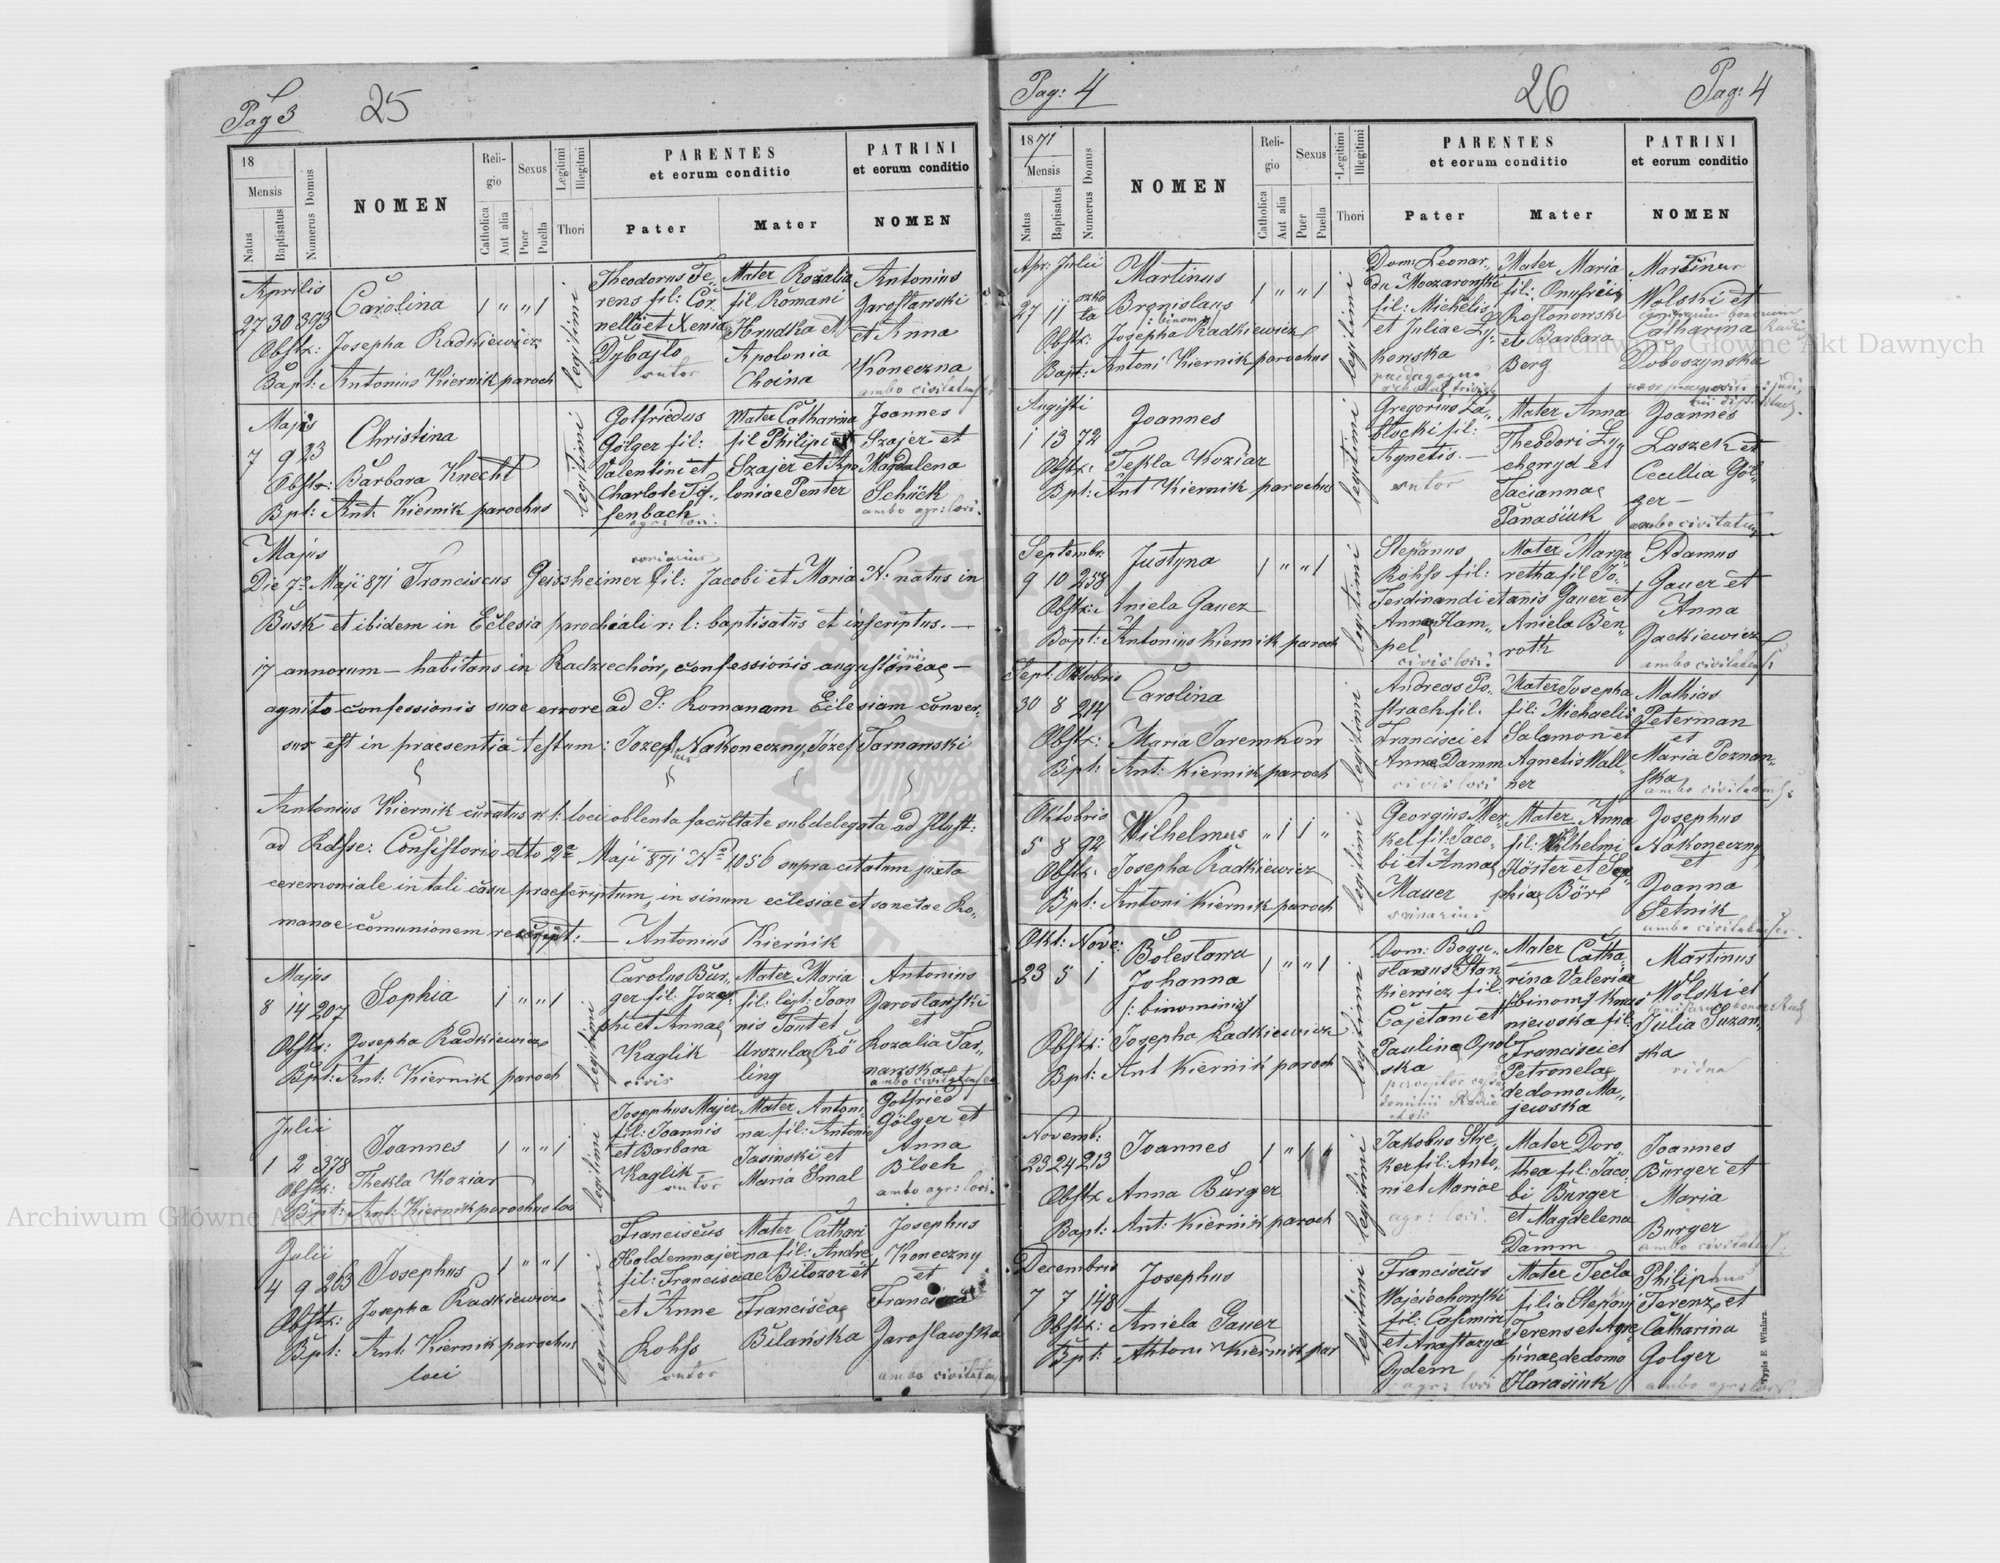 Pag 3
25
18
Mensis
Natus
Baptisatus
Numerus Domus
NOMEN
Religio
Catholica
Aut alia
Sexus
Puer
Puella
Legitimi
Illegitmi
Thori
PARENTES
et eorum conditio
Pater
Mater
PATRINI
et eorum conditio
NOMEN
Aprilis
27 30 393
Carolina
1 " " 1
Obstz: Josepha Radkiewicz
Bapt: Antonius Kiernik paroch
legitimi
Theodorus Te„
rens fil: Cor„
nelli et Xenia
Dybajlo
sutor
Mater Rozalia
fil Romani
Hrudka et
Apolonia
Choina
Antonius
Jaroslawski
et Anna
Koneczna
ambo civitatenses
Majus
7 9 23
Christina
Obstz: Barbara Knecht
Bpt: Ant. Kiernik parochus
legitimi
Gotfriedus
Gölger fil:
Valentini et
Charlote Tif„
fenbach
agr: loci:
Mater Catharina
fil Philipi et
Szajer et Apo
loniae Penter
Joannes
Szajer et
Magdalena
Schück
ambo agr: loci.
Majus
Die 7º Maji 871 Franciscus Geissheimer fil: Jacobi et Maria N: natus in
Busk et ibidem in Eclesia parocheali r: l: baptisatus et inscriptus. —
17 annorum — habitans in Radziechów, confessionis
agnito confessionis suae errore ad S: Romanam Eclesiam conver„
sus est in praesentia testum: Jozef Nakoneczny, Józef Tarnawski
Antonius Kiernik curatus r l: loci oblenta facultate subdelegata ad Illust:
ad Rdsse: Consistorio dtto 2ª Maji 871 Nº 1056 supra citatum juxta
ceremoniale in tali casu praescriptum, in sinum eclesiae et sanctae Ro„
manae comunionem recepit: — Antonius Kiernik
Majus
8 14 207
Sophia
1 " " 1
Obstz: Josepha Radkiewicz
Bpt: Ant: Kiernik paroch
legitimi
Carolus Bur„
ger fil: Joze„
phi et Annae
Kaglik
civis
Mater Maria
fil: legt: Joan
nis Taut et
Urszulae Rö
ling
Antonius
Jaroslawski
et
Rozalia Tar„
nawska
ambo civitatenses
Julii
1 2 378
Joannes
1 " " 1
Obstz: Thekla Koziar
Bpt: Ant: Kiernik parochus loc
legitimi
Josephus Majer
fil: Joannis
et Barbara
Kaglik
sutor
Mater Antoni„
na fil: Antonie
Jasinski et
Maria Smal
Gotfried
Gölger et
Anna
Bloch
ambo agr: loci.
Julii
4 9 263
Josephus
1 " " 1
Obstz: Josepha Radkiewicz
Bpt: Ant. Kiernik parochus
loci
legitimi
Franciscus
Holdenmajer
fil: Francisci
et Anne
Rohss
sutor
Mater Cathari
na fil: Andre
ae Bilozor et
Franciscae
Bilańska
Josephus
Koneczny
et
Francisca
Jaroslawska
ambo civitat
Pag: 4
26
Pag: 4
1871
Mensis
Natus
Baptisatus
Numerus Domus
NOMEN
Religio
Catholica
Aut alia
Sexus
Puer
Puella
Legitimi
Illegitimi
Thori
PARENTES
et eorum conditio
Pater
Mater
PATRINI
et eorum conditio
NOMEN
Apr: Julii
27 11 szko
ta
Martinus
Bronislaus
: binom:
1 " " 1
Obstz: Josepha Radkiewicz
Bapt: Antoni Kiernik parochus
legitimi
Dom: Leonar„
du Moczarowski
fil: Michelis
et Juliae Ly„
honska
Mater Maria
fil: Onufreii
Koslonowski
et Barbara
Berg
Martinus
Wolski et
Catharina
Doboszynska
Augusti
1 13 72
Joannes
Obstz: Tekla Koziar
Bpt: Ant Kiernik parochus
legitimi
Gregorius Za„
blocki fil:
Agnetis. —
sutor
Mater Anna
Theodori Ly„
chowyd et
Taciannae
Panasiuk
Joannes
Laszek et
Cecillia Göl„
ger —
ambo civitatens
Septembr:
9 10 258
Justyna
1 " " 1
Obstz: Aniela Gauer
Bapt: Antonius Kiernik paroch
legitimi
Stepanus
Rohss fil:
Ferdinandi et
Annae Ham„
pel
civis loci:
Mater Marga
retha fil Jo„
anis Gauer et
Aniela Ben„
roth
Adamus
Gauer et
Anna
Jackiewicz
ambo civitatens:
Sept: Oktobris
30 8 214
Carolina
Obstz: Maria Jaremków
Bpt: Ant: Kiernik paroch
legitimi
Andreas Po„
strach fil.
Francisci et
Annae Damm
civis loci
Mater Josepha
fil: Michaelis
Salamon et
Agnetis Wall„
ner
Mathias
Peterman
et
Maria Poznan„
ska
ambo civitatens:
Oktobris
5 8 92
Wilhelmus
" 1 1 "
Obstz: Josepha Radkiewicz
Bpt: Antoni Kiernik paroch
legitimi
Georgius Mer„
kel fil: Jaco„
bi et Annae
Mauer
Mater Anna
fil: Wilhelmi
Höster et So„
phiae Böre
Josephus
Nakoneczny
et
Joanna
Letnik
ambo civitatenses.
Okt: Nove:
23 5 1
Boleslawa
Johanna
/: binominis/
1 " " 1
Obstz: Josepha Radkiewicz
Bpt: Ant Kiernik paroch
legitima
Dom: Bogu„
slawus Stan„
kiewicz fil:
Cajetani et
Pauline Opol„
ska
Mater Catha„
rina Valeria
/:binom/ Korzе
niewska fil:
Francisci et
Petronelae
de domo Ma„
jewska
Martinus
Wolski et
Julia Suzan„
ska
vidua
Novemb:
23 24 213
Joannes
Obstz Anna Burger
Bapt: Ant: Kiernik paroch
legitimi
Jakobus Stre„
ker fil: Anto„
ni et Mariae
agr: loci.
Mater Doro„
thea fil: Jaco„
bi Burger
et Magdelena
Damm
Joannes
Burger et
Maria
Burger
ambo civitatens:
Decembris
7 7 148
Josephus
Obstz: Aniela Gauer
Bpt: Antoni Kiernik par
legitimi
Franciscus
Wojciechowski
fil: Casimiri
et Anastazya
Dydem
agr: loci
Mater Tecla
filia Stepany
Terens et Agre
pinae de domo
Harasiuk
Philiphus
Terenz et
Catharina
Golger
ambo agr: loci
Typis E. Winiarz.
Archiwum Główne Akt Dawnych
Archiwum Główne Akt Dawnych